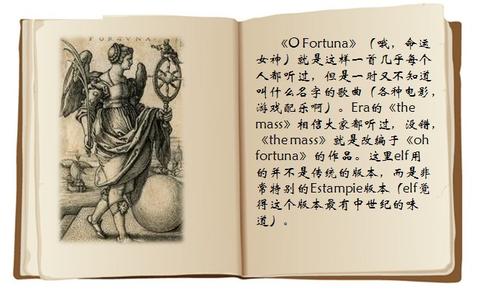 FORTVNA
《O Fortuna》（哦，命运
女神）就是这样一首几乎每个
人都听过，但是一时又不知道
叫什么名字的歌曲（各种电影，
游戏配乐啊）。Era的《the
mass》相信大家都听过，没错，
《the mass》就是改编于《oh
fortuna》的作品。这里elf用
的并不是传统的版本，而是非
常特别的Estampie版本（elf觉
得这个版本最有中世纪的味
道）。